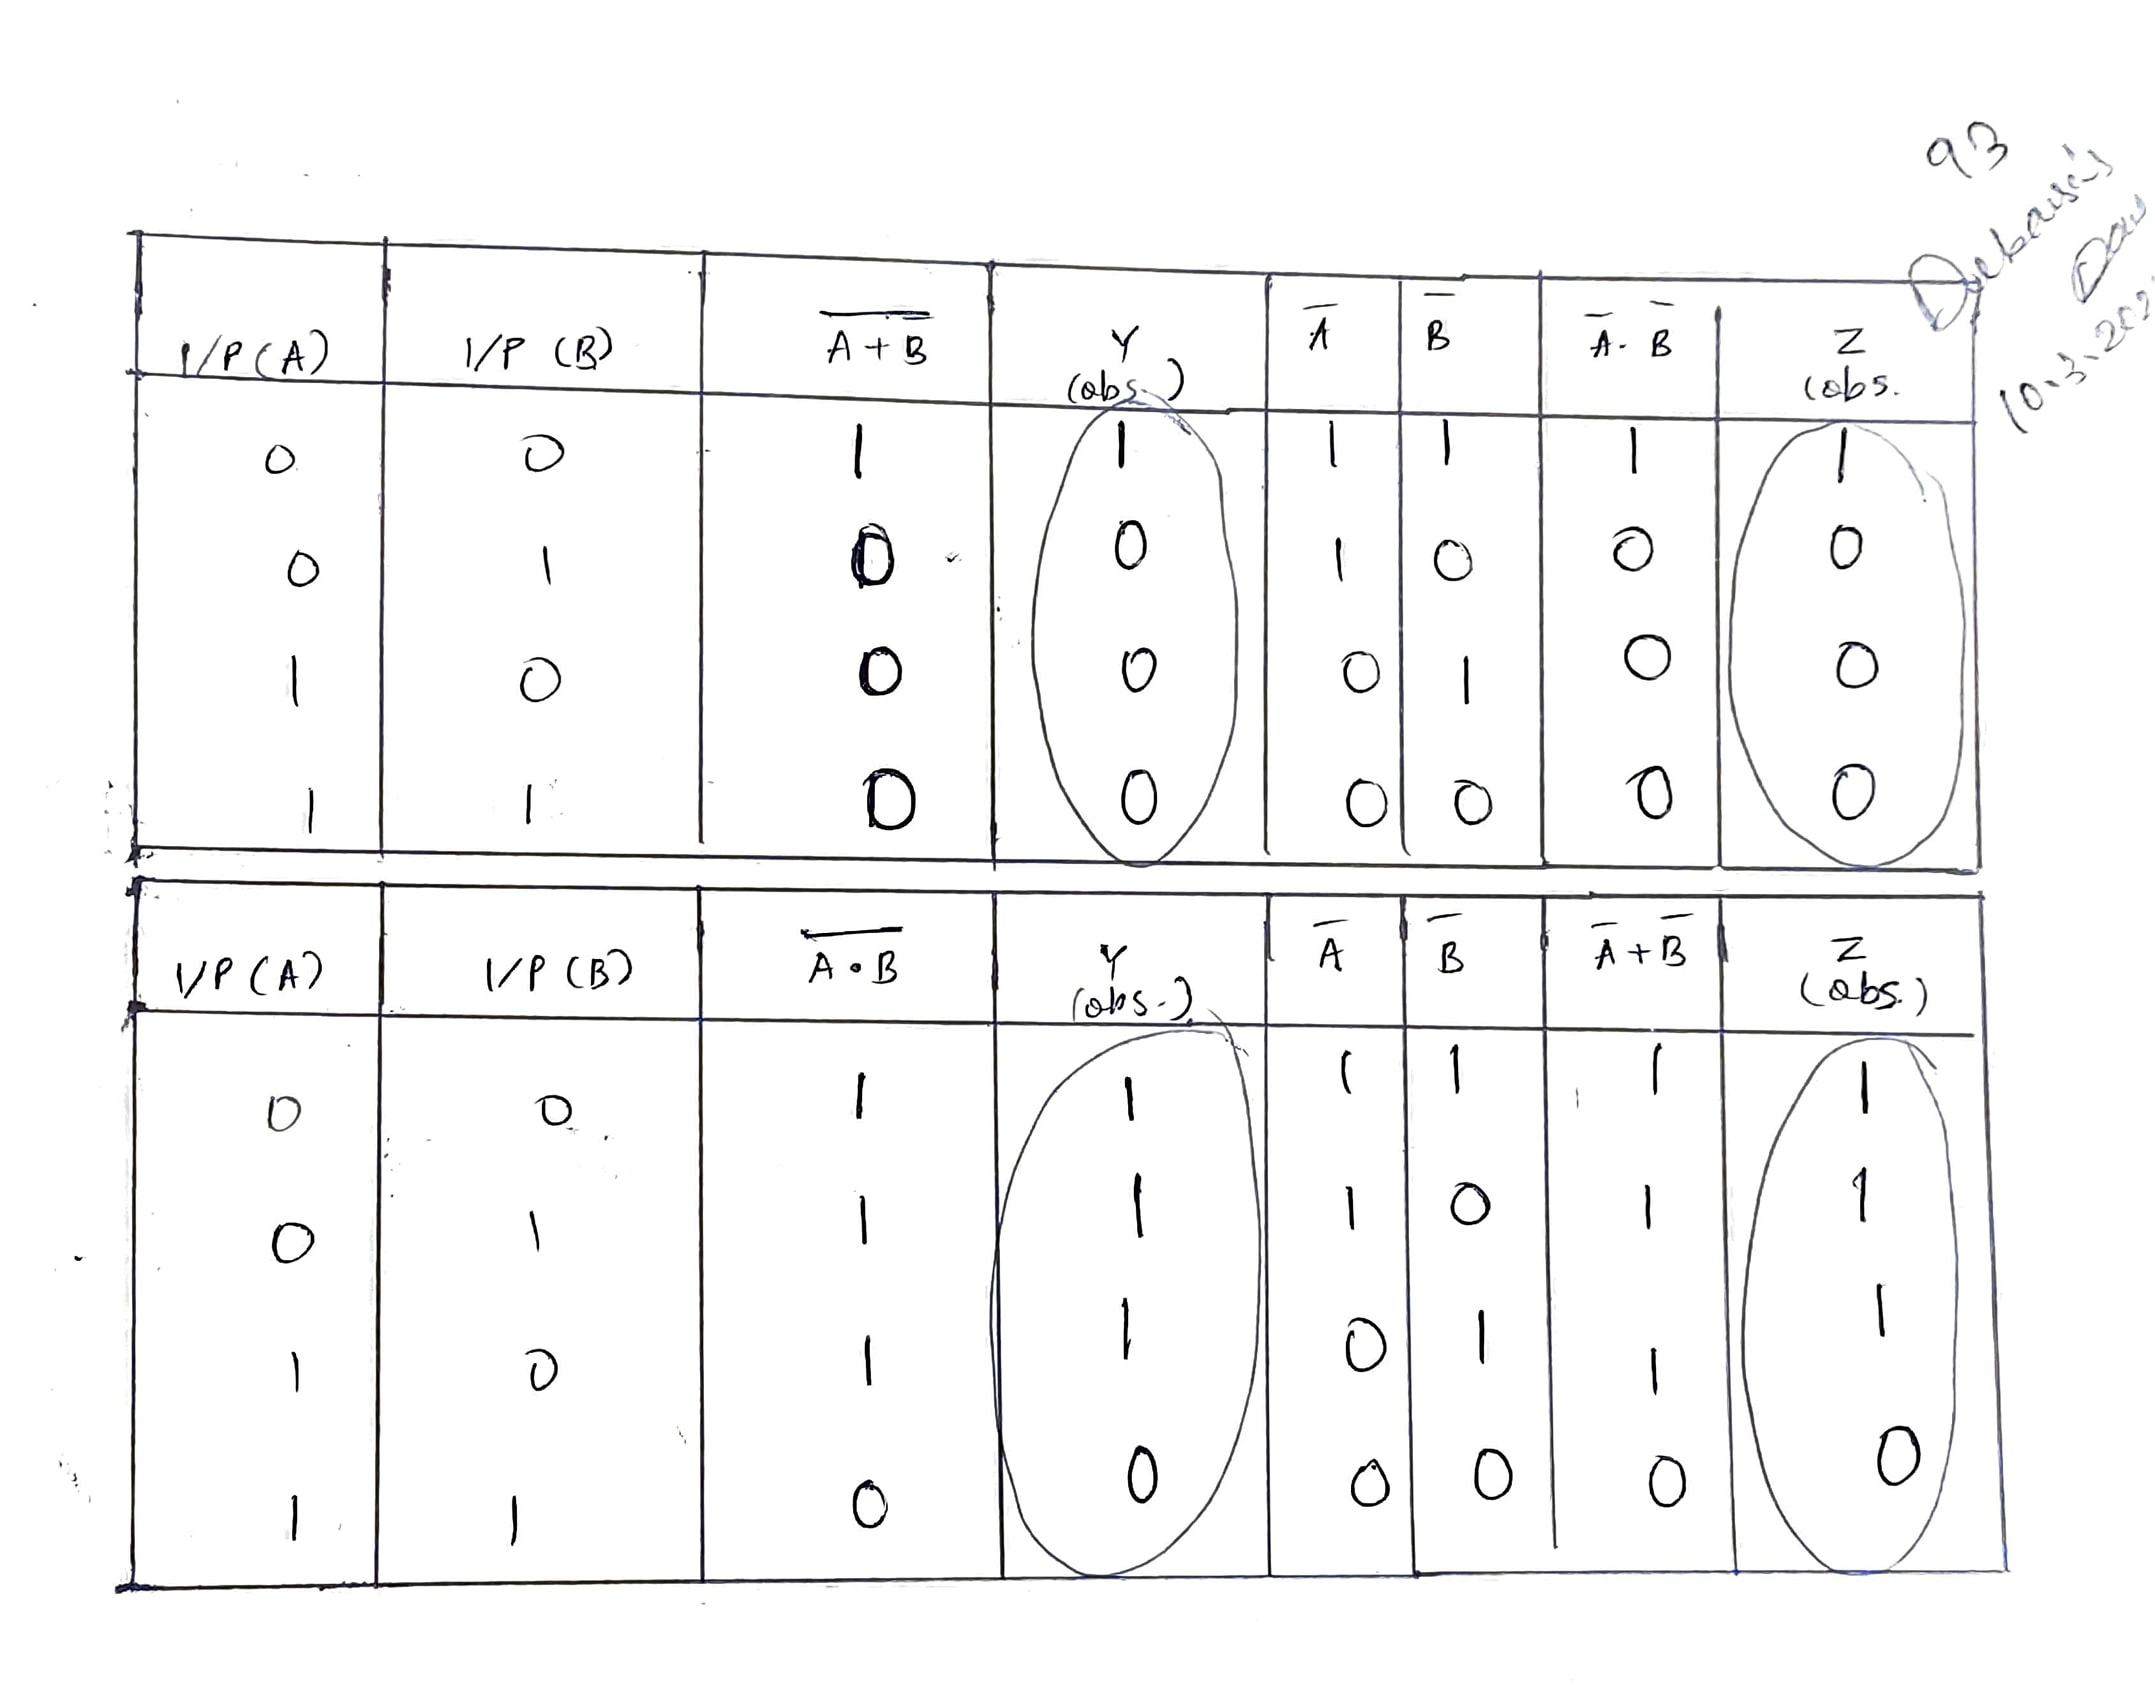 93
Debasis
Das
10-3-202
I/P (A) I/P (B) A̅+̅B̅ Y (obs.) A̅ B̅ A̅.B̅ Z (obs.
0 0 1 1 1 1 1 1
0 1 0 0 1 0 0 0
1 0 0 0 0 1 0 0
1 1 0 0 0 0 0 0
I/P (A) I/P (B) A̅•̅B̅ Y (obs.) A̅ B̅ A̅+B̅ Z (obs.)
0 0 1 1 1 1 1 1
0 1 1 1 1 0 1 1
1 0 1 1 0 1 1 1
1 1 0 0 0 0 0 0